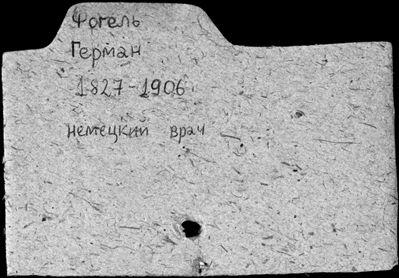 Фогель
Герман
1827-1906
немецкий врач